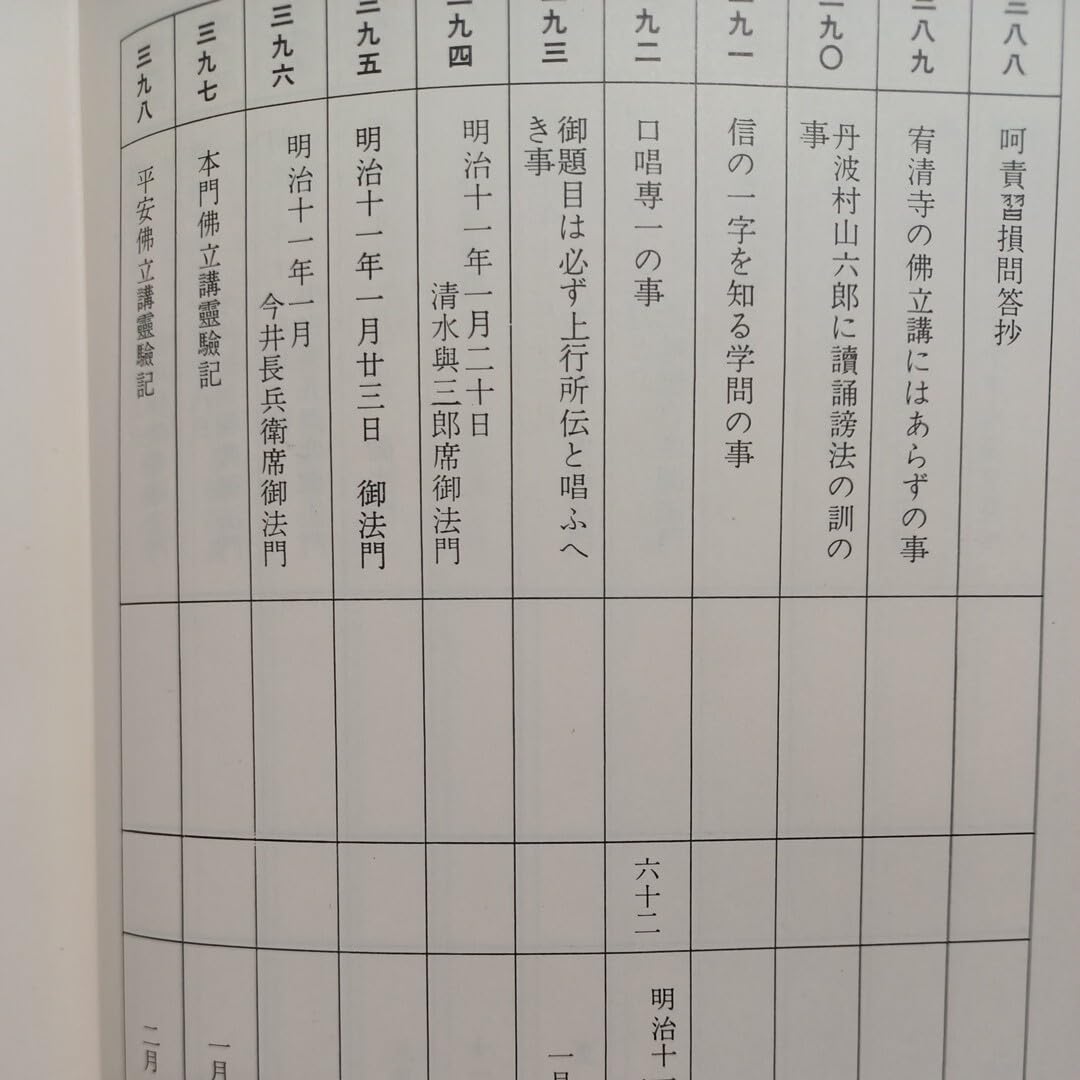 三八八
呵責習損問答抄
三八九
宥清寺の佛立講にはあらずの事
三九〇
丹波村山六郎に讀誦謗法の訓の
事
三九一
信の一字を知る学問の事
九二
口唱専一の事
六十二
明治十
三九三
御題目は必ず上行所伝と唱ふへ
き事
一月
三九四
明治十一年一月二十日
清水與三郎席御法門
三九五
明治十一年一月廿三日 御法門
三九六
明治十一年一月
今井長兵衛席御法門
三九七
本門佛立講靈驗記
一月
三九八
平安佛立講靈驗記
二月